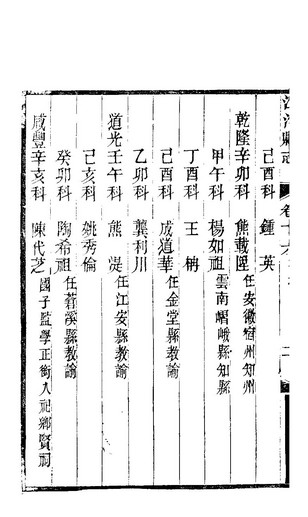 縣志
卷十六
己酉科 鍾英
乾隆辛卯科 熊載陞 任安徽宿州知州
甲午科 楊如祖 雲南嶍峨縣知縣
丁酉科 王枬
己酉科 成道華 任金堂縣教諭
乙卯科 龔利川
道光壬午科 熊湜 任江安縣教諭
己亥科 姚秀倫
癸卯科 陶希祖 任 溪縣教諭
咸豐辛亥科 陳代芝 國子監學正銜入祀鄉賢祠